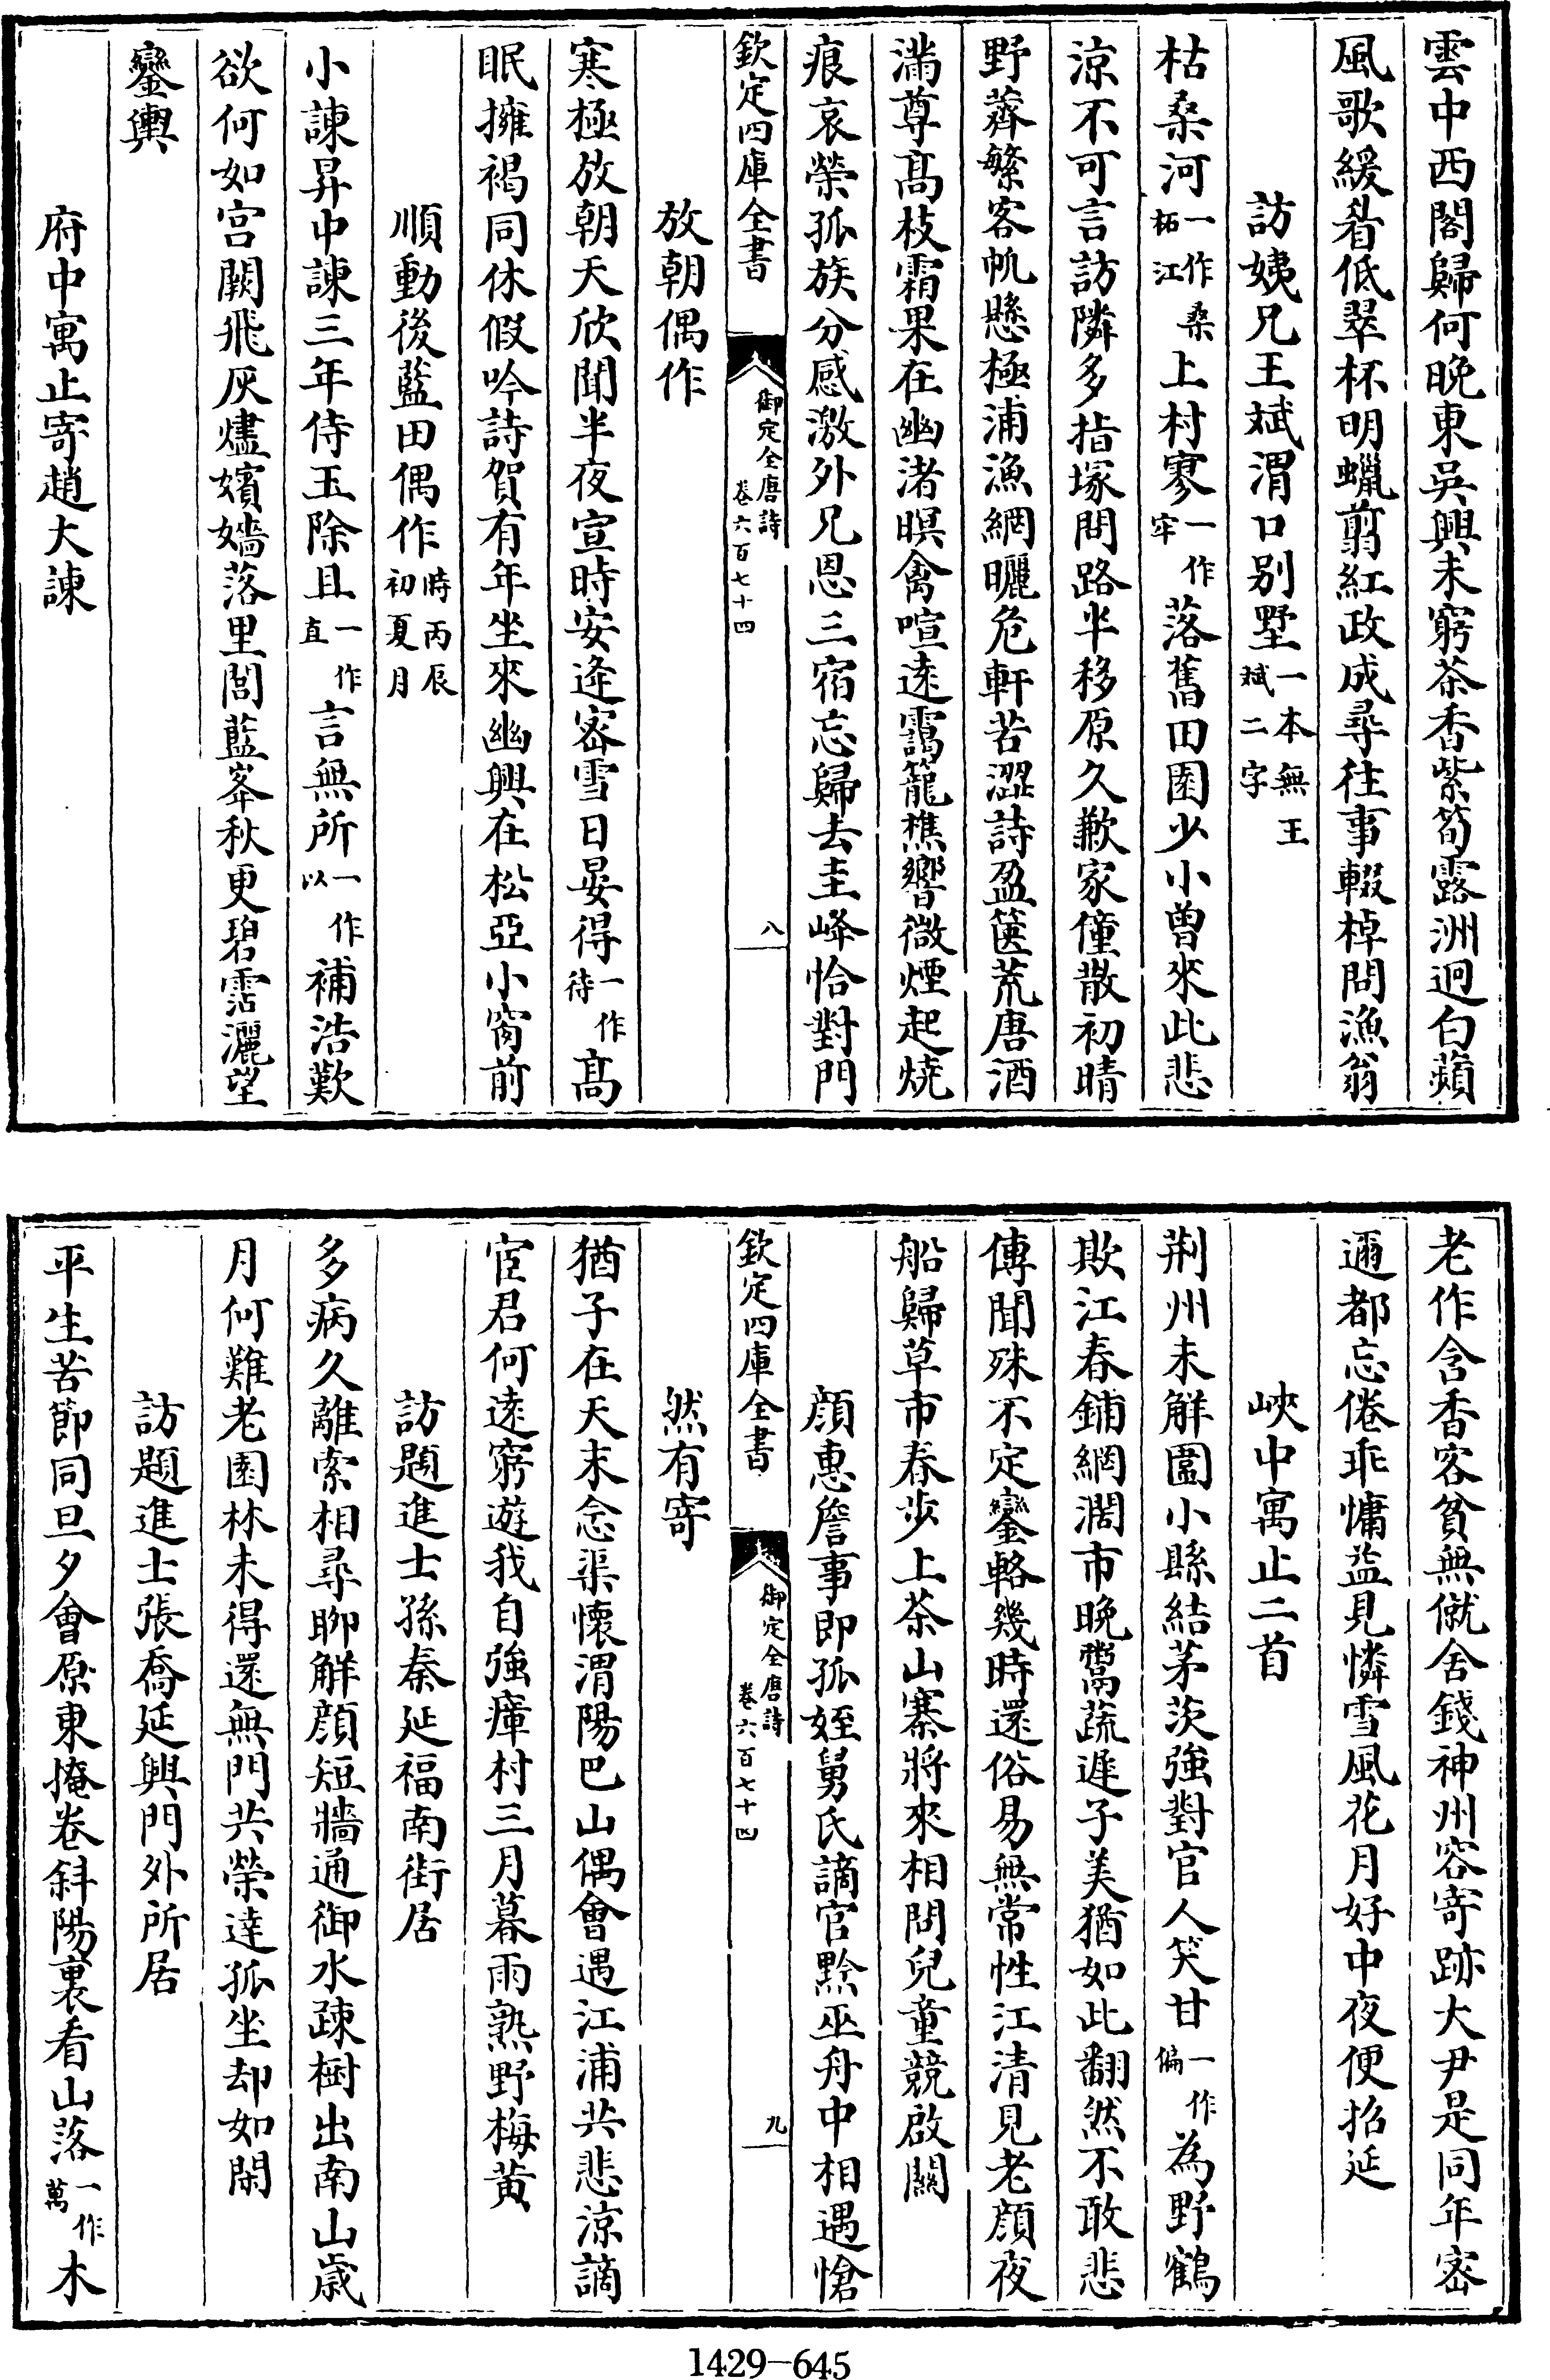 雲中西閣歸何晚東吳興未窮茶香紫筍露洲迥白蘋
風歌緩看低翠杯明蠟剪紅政成尋往事輟棹問漁翁
訪姨兄王斌渭口别墅一本無王斌二字
枯桑河一作桑柘江上村寥一作牢落舊田園少小曽來此悲
涼不可言訪隣多指塚問路半移原久歉家僮散初晴
野薺繁客帆懸極浦漁網曬危軒苦澀詩盈篋荒唐酒
滿尊髙枝霜果在幽渚暝禽喧遠靄籠樵響微煙起燒
痕哀榮孤族分感激外兄恩三宿忘歸去圭峰恰對門
欽定四庫全書
御定全唐詩
卷六百七十四
八
放朝偶作
寒極放朝天欣聞半夜宣時安逄宻雪日晏得一作待髙
眠擁褐同休假吟詩賀有年坐來幽興在松亞小窗前
順動後藍田偶作時丙辰初夏月
小諫昇中諫三年侍玉除且一作直言無所一作以補浩歎
欲何如宫闕飛灰燼嬪嬙落里閭藍峯秋更碧霑灑望
鑾輿
府中寓止寄趙大諫
老作含香客貧無僦舍錢神州容寄跡大尹是同年宻
邇都忘倦乖慵益見憐雪風花月好中夜便招延
峽中寓止二首
荆州未解圍小縣結茅茨強對官人笑甘一作偏為野鶴
欺江春鋪網濶市晚鬻蔬遲子美猶如此翻然不敢悲
傳聞殊不定鑾輅幾時還俗易無常性江清見老顔夜
船歸草市春步上茶山寨將來相問兒童競啟關
顔惠詹事即孤姪舅氏謫官黔巫舟中相遇愴
欽定四庫全書
御定全唐詩
卷六百七十四
九
然有寄
猶子在天末念渠懷渭陽巴山偶會遇江浦共悲涼謫
宦君何遠窮遊我自強瘴村三月暮雨熟野梅黄
訪題進士孫秦延福南街居
多病久離索相尋聊解顔短牆通御水疎樹出南山歲
月何難老園林未得還無門共榮達孤坐却如閑
訪題進士張喬延興門外所居
平生苦節同旦夕會原東掩卷斜陽裏看山落一作萬木
1429－645